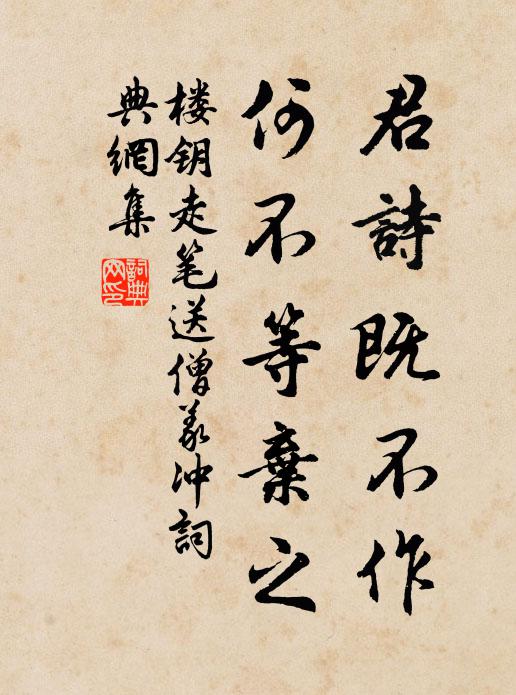 君詩既不作
何不等棄之
楼钥走笔送僧义冲詞
典網集
詞典
网印